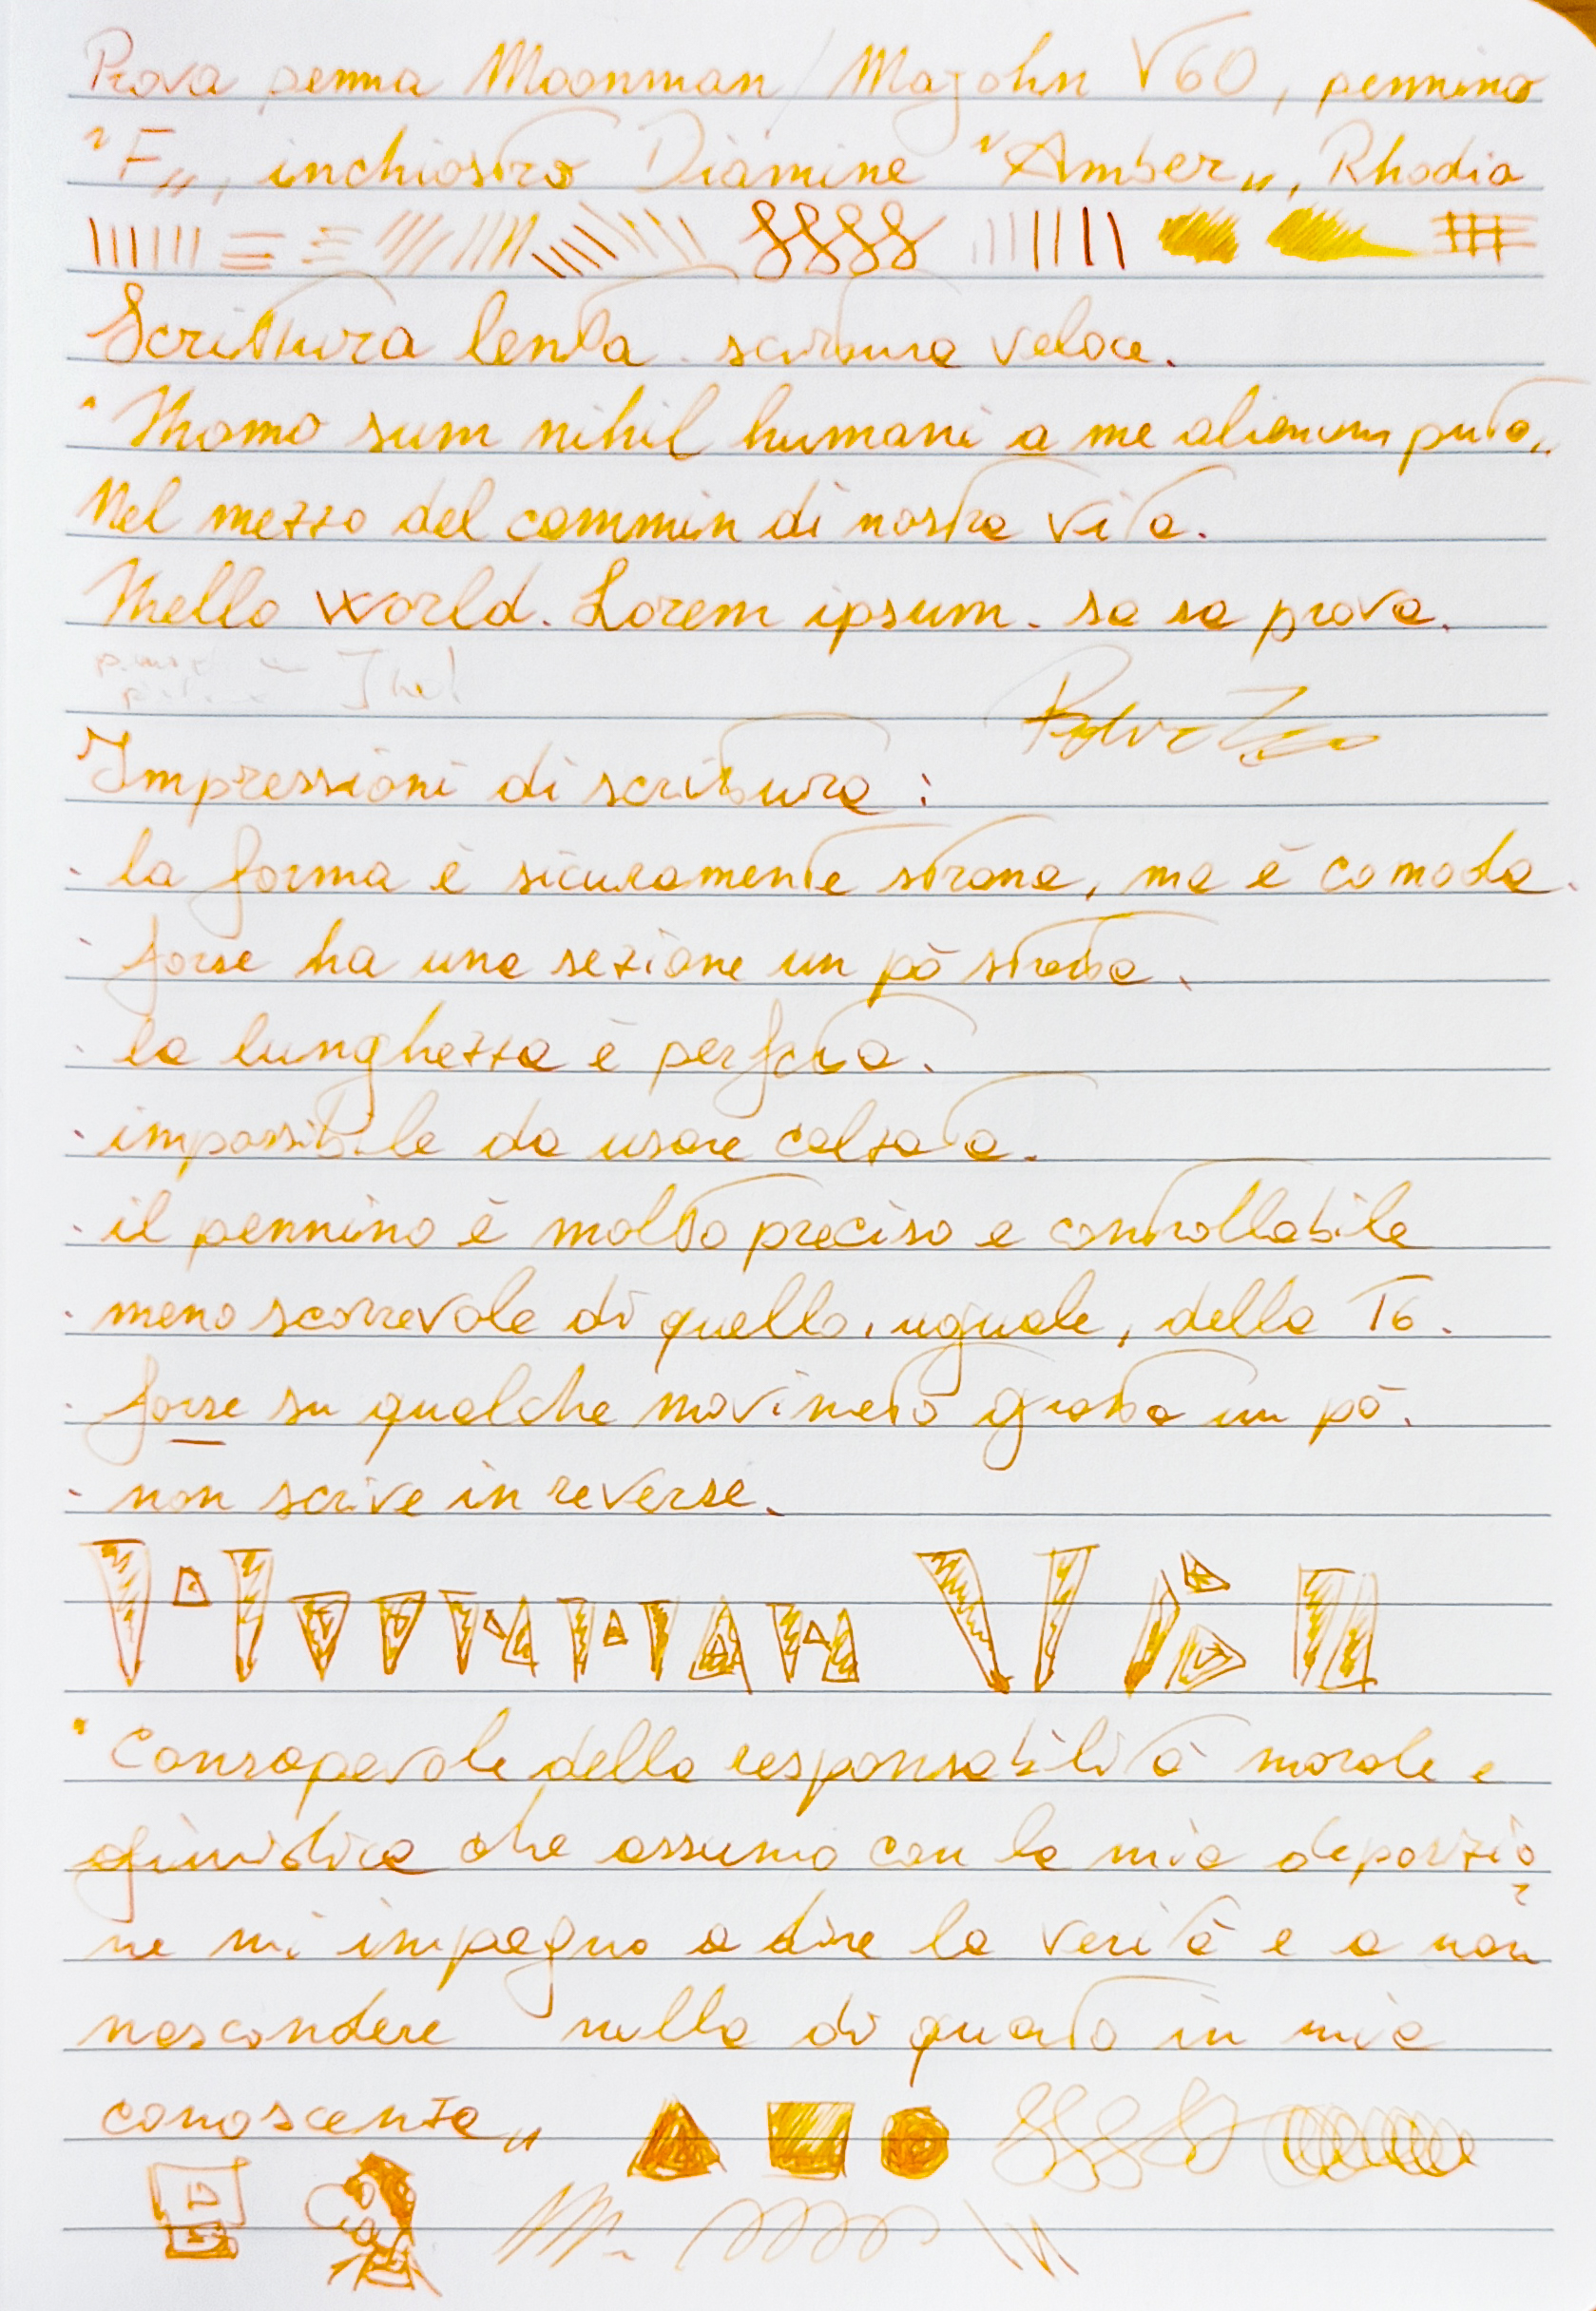 Prova penna Moonman/Majohn V60, pennino
"F", inchiostro Diamine "Amber", Rhodia
Scrittura lenta. scrittura veloce.
"Homo sum nihil humani a me alienum puto"
Nel mezzo del cammin di nostra vita.
Hello world. Lorem ipsum. sa sa prova.
Impressioni di scrittura:
. la forma è sicuramente strana, ma è comoda.
. forse ha una sezione un pò stretta.
. la lunghezza è perfetta.
. impossibile da usare calzata.
. il pennino è molto preciso e controllabile
. meno scorrevole di quello, uguale, della T6.
. forse su qualche movimeto gratta un pò.
. non scrive in reverse.
Moonman V60
"Consapevole della responsabilità morale e
giuridica che assumo con la mia deposizio
ne mi impegno a dire la verità e a non
nascondere nulla di quato in mia
conoscenza"